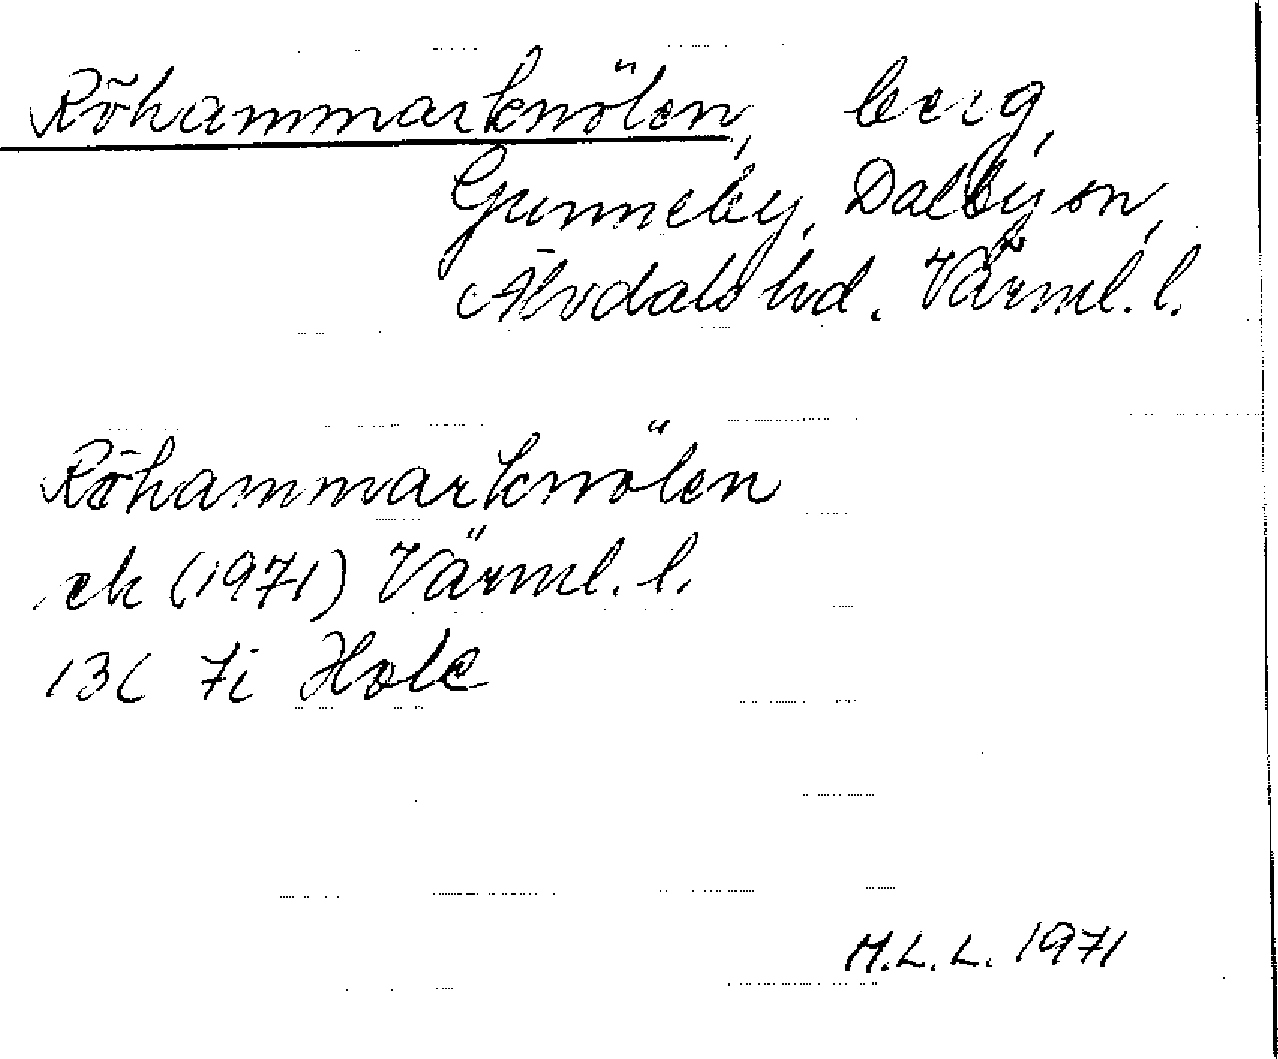 Röhammarknölen, berg,
Gunneby, Dalby sn,
Älvdals hd. Värml. l.
Röhammarknölen
ek (1971) Värml. l.
13C 7i Hole
M.L.L. 1971